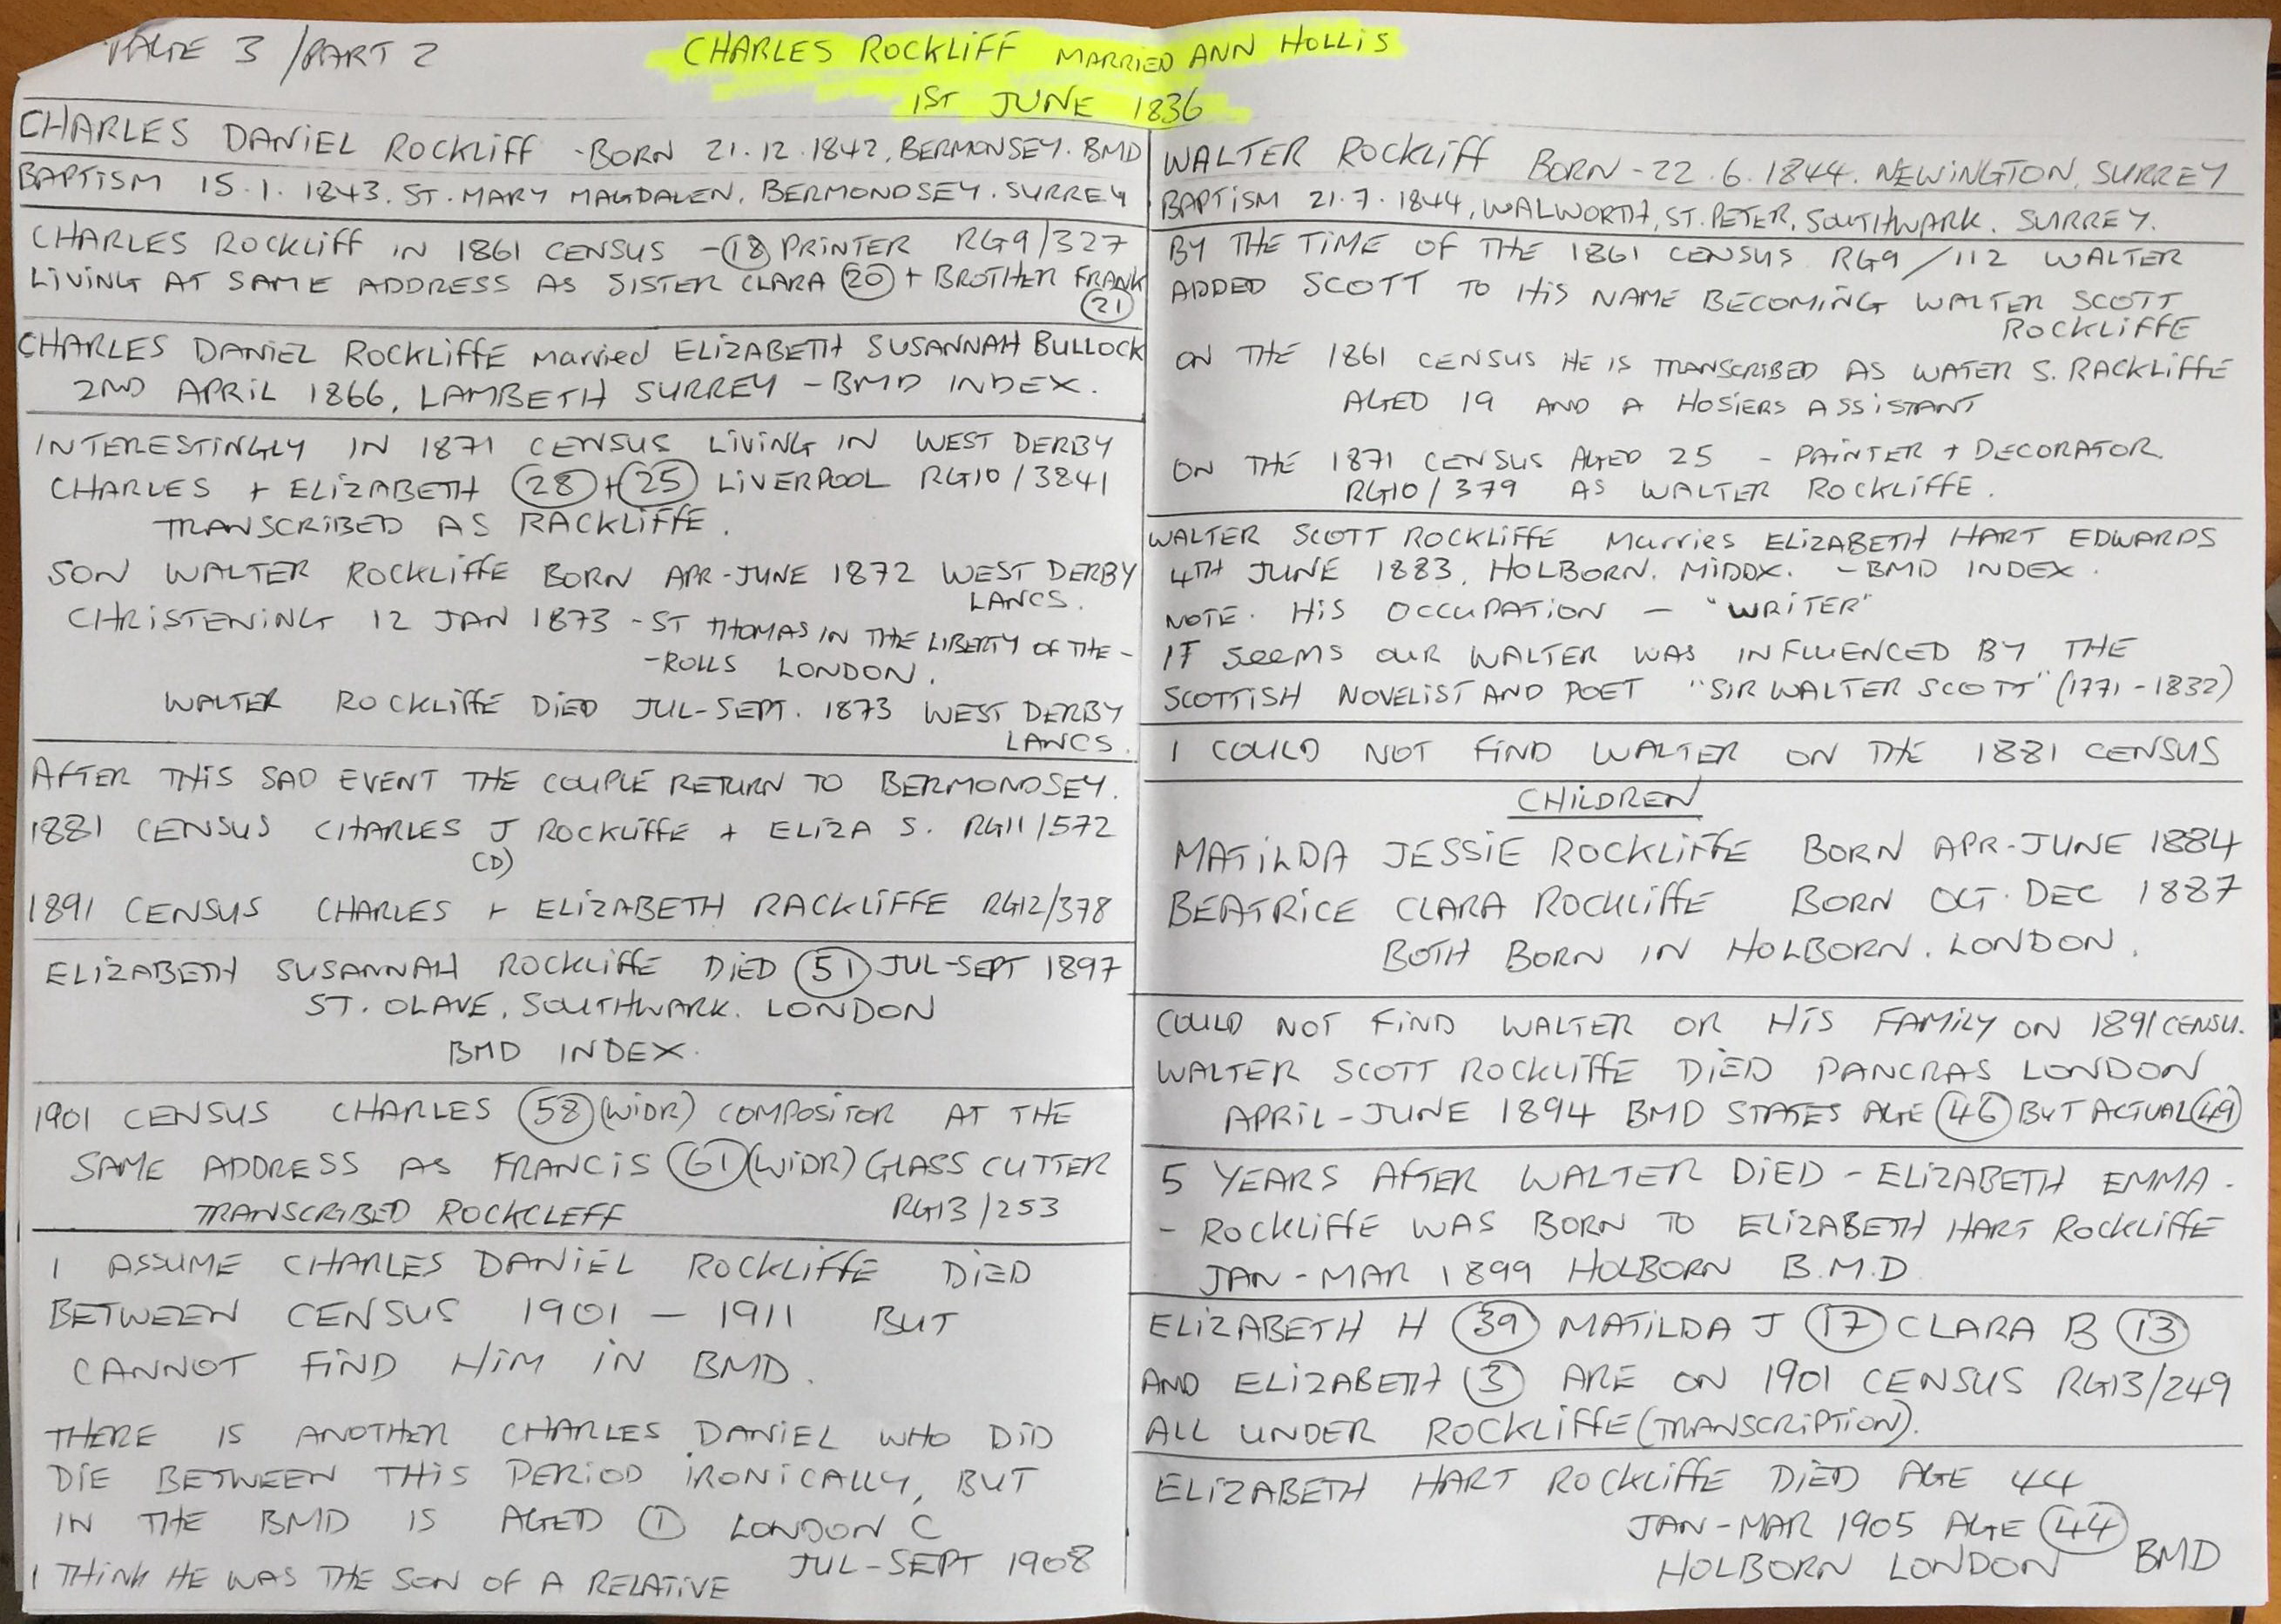 PAGE 3 / PART 2
CHARLES ROCKLIFF MARRIED ANN HOLLIS
1ST JUNE 1836
CHARLES DANIEL ROCKLIFF - BORN 21.12.1842, BERMONSEY. BMD
BAPTISM 15.1.1843. ST. MARY MAGDALEN, BERMONDSEY. SURREY
CHARLES ROCKLIFF IN 1861 CENSUS - 18 PRINTER RG9/327
LIVING AT SAME ADDRESS AS SISTER CLARA 20 + BROTHER FRANK
21
CHARLES DANIEL ROCKLIFFE married ELIZABETH SUSANNAH BULLOCK
2ND APRIL 1866, LAMBETH SURREY - BMD INDEX.
INTERESTINGLY IN 1871 CENSUS LIVING IN WEST DERBY
CHARLES + ELIZABETH 28 + 25 LIVERPOOL RG10/3841
TRANSCRIBED AS RACKLIFFE.
SON WALTER ROCKLIFFE BORN APR-JUNE 1872 WEST DERBY
LANCS.
CHRISTENING 12 JAN 1873 - ST THOMAS IN THE LIBERTY OF THE -
- ROLLS LONDON.
WALTER ROCKLIFFE DIED JUL-SEPT. 1873 WEST DERBY
LANCS.
AFTER THIS SAD EVENT THE COUPLE RETURN TO BERMONDSEY.
1881 CENSUS CHARLES J ROCKLIFFE + ELIZA S. RG11/572
(D)
1891 CENSUS CHARLES + ELIZABETH RACKLIFFE RG12/378
ELIZABETH SUSANNAH ROCKLIFFE DIED 51 JUL-SEPT 1897
ST. OLAVE, SOUTHWARK. LONDON
BMD INDEX.
1901 CENSUS CHARLES 58 (WIDR) COMPOSITOR AT THE
SAME ADDRESS AS FRANCIS 61 (WIDR) GLASS CUTTER
TRANSCRIBED ROCKCLEFF RG13/253
I ASSUME CHARLES DANIEL ROCKLIFFE DIED
BETWEEN CENSUS 1901 - 1911 BUT
CANNOT FIND HIM IN BMD.
THERE IS ANOTHER CHARLES DANIEL WHO DID
DIE BETWEEN THIS PERIOD IRONICALLY, BUT
IN THE BMD IS AGED 1 LONDON C
JUL-SEPT 1908
I THINK HE WAS THE SON OF A RELATIVE
WALTER ROCKLIFF BORN - 22.6.1844. NEWINGTON, SURREY
BAPTISM 21.7.1844, WALWORTH, ST. PETER, SOUTHWARK. SURREY.
BY THE TIME OF THE 1861 CENSUS RG9/112 WALTER
ADDED SCOTT TO HIS NAME BECOMING WALTER SCOTT
ROCKLIFFE
ON THE 1861 CENSUS HE IS TRANSCRIBED AS WATER S. RACKLIFFE
AGED 19 AND A HOSIERS ASSISTANT
ON THE 1871 CENSUS AGED 25 - PAINTER + DECORATOR
RG10/379 AS WALTER ROCKLIFFE.
WALTER SCOTT ROCKLIFFE Marries ELIZABETH HART EDWARDS
4TH JUNE 1883, HOLBORN. MIDDX. - BMD INDEX.
NOTE. HIS OCCUPATION - "WRITER"
IT SEEMS OUR WALTER WAS INFLUENCED BY THE
SCOTTISH NOVELIST AND POET "SIR WALTER SCOTT" (1771-1832)
I COULD NOT FIND WALTER ON THE 1881 CENSUS
CHILDREN
MATILDA JESSIE ROCKLIFFE BORN APR-JUNE 1884
BEATRICE CLARA ROCKLIFFE BORN OCT-DEC 1887
BOTH BORN IN HOLBORN. LONDON.
COULD NOT FIND WALTER OR HIS FAMILY ON 1891 CENSU.
WALTER SCOTT ROCKLIFFE DIED PANCRAS LONDON
APRIL-JUNE 1894 BMD STATES AGE 46 BUT ACTUAL 49
5 YEARS AFTER WALTER DIED - ELIZABETH EMMA -
- ROCKLIFFE WAS BORN TO ELIZABETH HART ROCKLIFFE
JAN-MAR 1899 HOLBORN B.M.D
ELIZABETH H 39 MATILDA J 17 CLARA B 13
AND ELIZABETH 3 ARE ON 1901 CENSUS RG13/249
ALL UNDER ROCKLIFFE (TRANSCRIPTION).
ELIZABETH HART ROCKLIFFE DIED AGE 44
JAN-MAR 1905 AGE 44
HOLBORN LONDON BMD